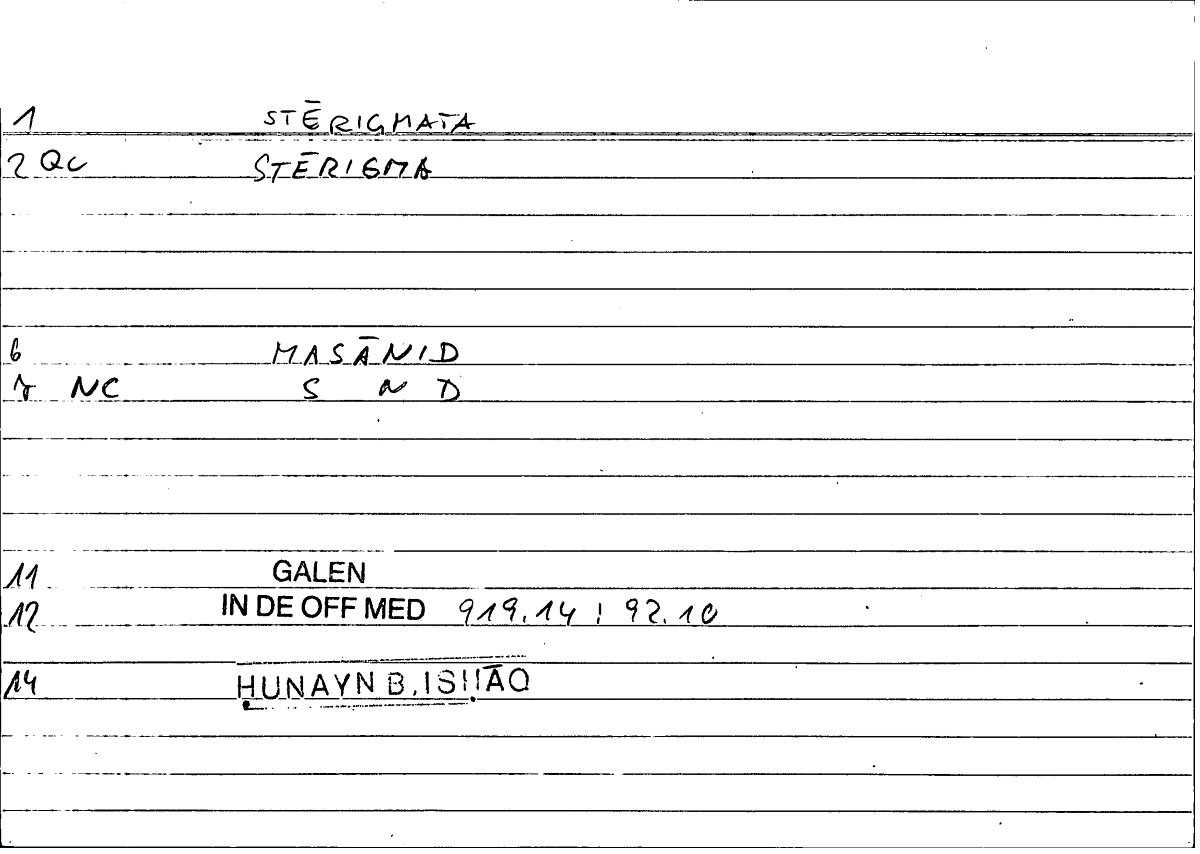 1 STĒRIGMATA
2 QC STĒRIGMA
6 MASĀNID
7 NC S N D
11 GALEN
12 IN DE OFF MED 919.14 : 92.10
14 ḤUNAYN B. ISḤĀQ